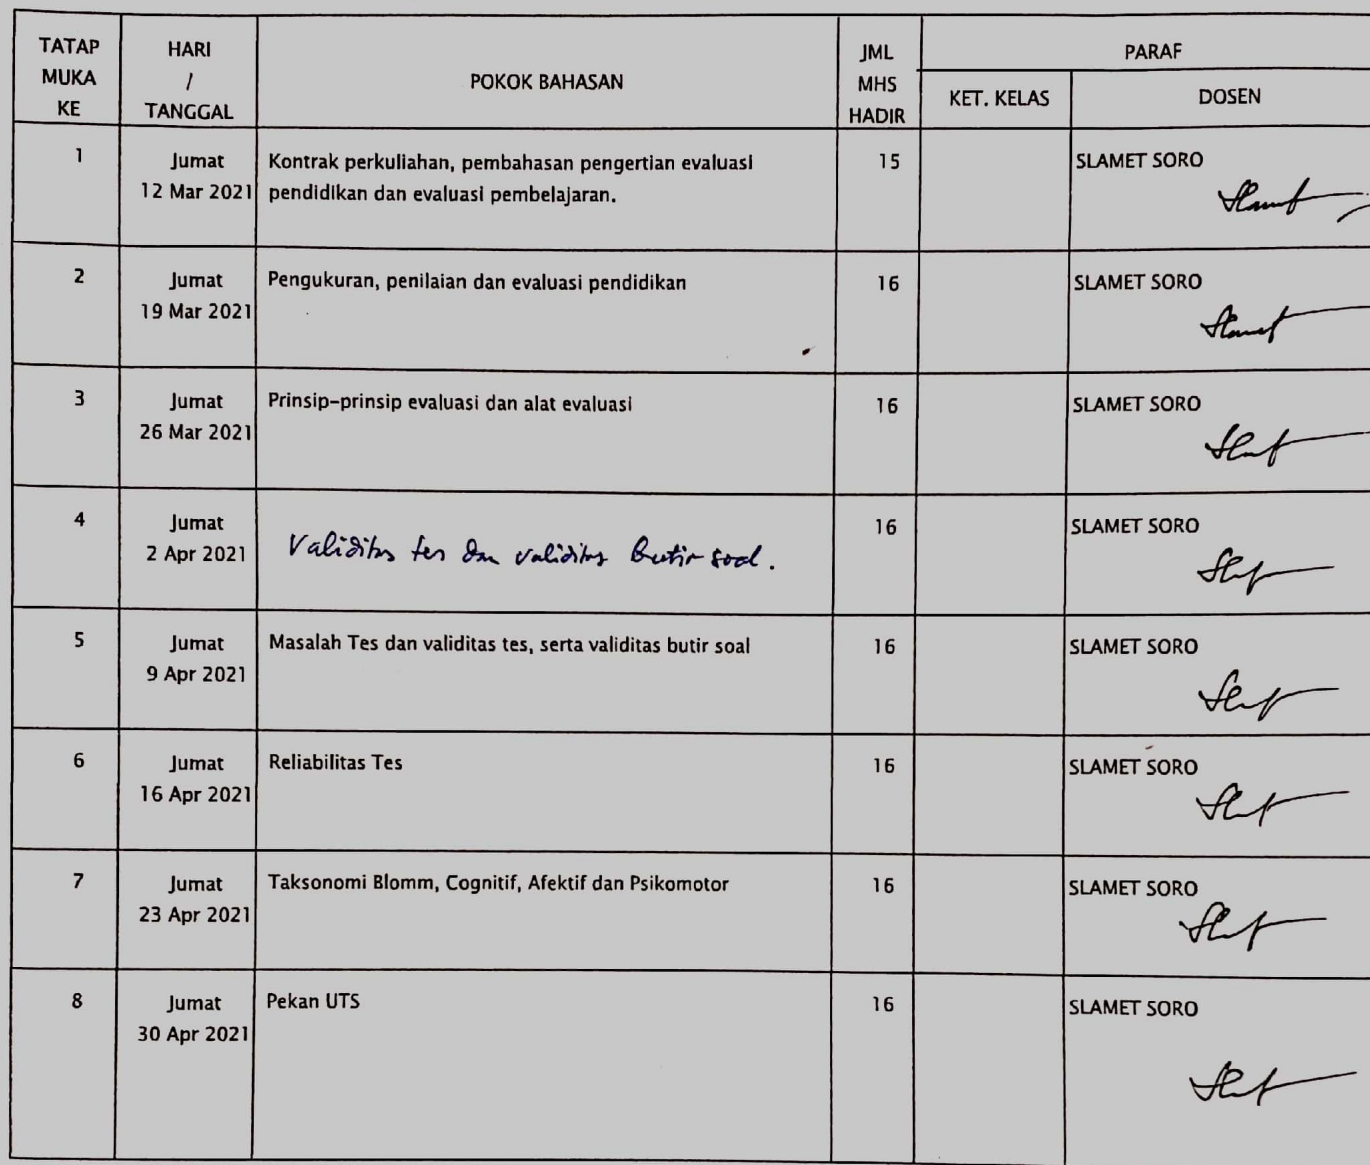 TATAP MUKA KE
HARI / TANGGAL
POKOK BAHASAN
JML MHS HADIR
PARAF
KET. KELAS
DOSEN
1
Jumat
12 Mar 2021
Kontrak perkuliahan, pembahasan pengertian evaluasi
pendidikan dan evaluasi pembelajaran.
15
SLAMET SORO
2
Jumat
19 Mar 2021
Pengukuran, penilaian dan evaluasi pendidikan
16
SLAMET SORO
3
Jumat
26 Mar 2021
Prinsip-prinsip evaluasi dan alat evaluasi
16
SLAMET SORO
4
Jumat
2 Apr 2021
Validitas tes dan validitas butir soal.
16
SLAMET SORO
5
Jumat
9 Apr 2021
Masalah Tes dan validitas tes, serta validitas butir soal
16
SLAMET SORO
6
Jumat
16 Apr 2021
Reliabilitas Tes
16
SLAMET SORO
7
Jumat
23 Apr 2021
Taksonomi Blomm, Cognitif, Afektif dan Psikomotor
16
SLAMET SORO
8
Jumat
30 Apr 2021
Pekan UTS
16
SLAMET SORO